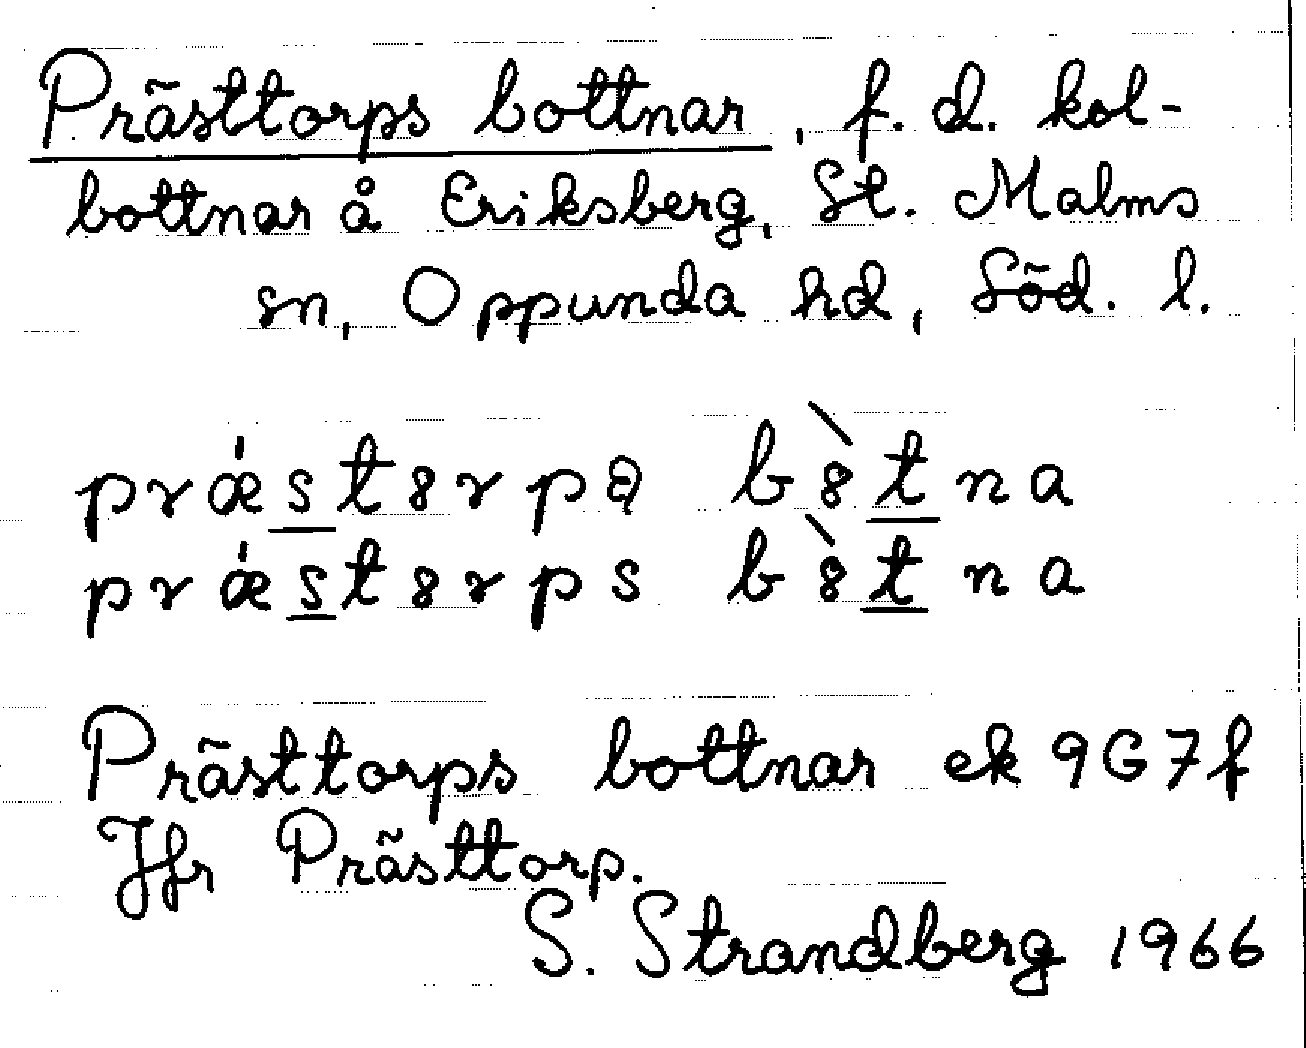 Prästtorps bottnar, f. d. kol-
bottnar å Eriksberg, St. Malms
sn, Oppunda hd, Söd. l.
bottna
bottna
Prästtorps bottnar ek 9G7f
Jfr Prästtorp.
S. Strandberg 1966